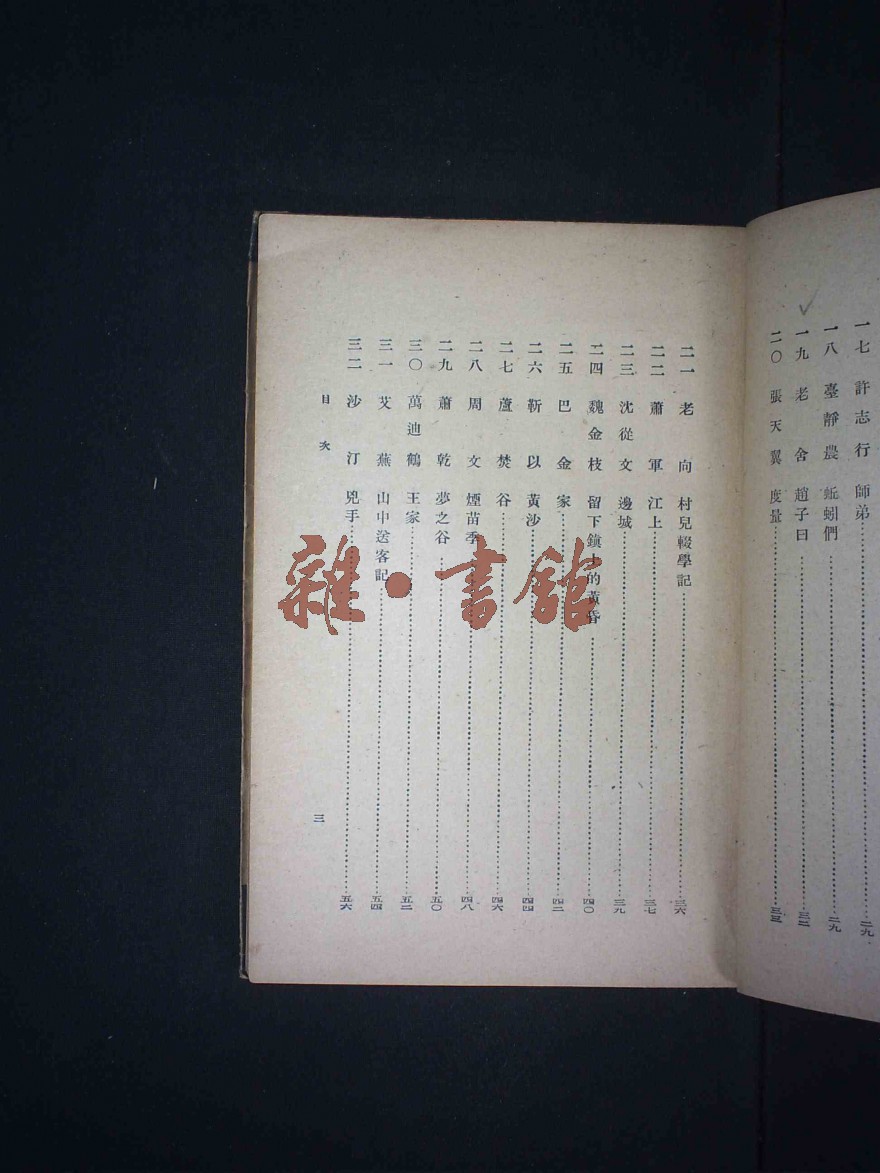 一七 許志行 師弟 二九
一八 臺靜農 蚯蚓們 二九
一九 老舍 趙子曰 三二
二〇 張天翼 度量 三三
二一 老向 村兒輟學記 三六
二二 蕭軍 江上 三七
二三 沈從文 邊城 三九
二四 魏金枝 留下鎭上的黃昏 四〇
二五 巴金 家 四二
二六 靳以 黃沙 四四
二七 蘆焚 谷 四六
二八 周文 煙苗季 四八
二九 蕭乾 夢之谷 五〇
三〇 萬迪鶴 王家 五二
三一 艾蕪 山中送客記 五四
三二 沙汀 兇手 五六
目次
三
雜·書館